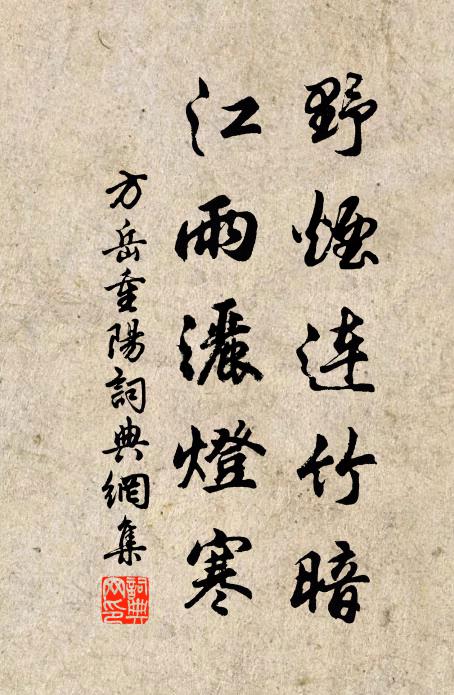 野煙連竹暗
江雨灑燈寒
方岳重陽詞典網集
詞典網印